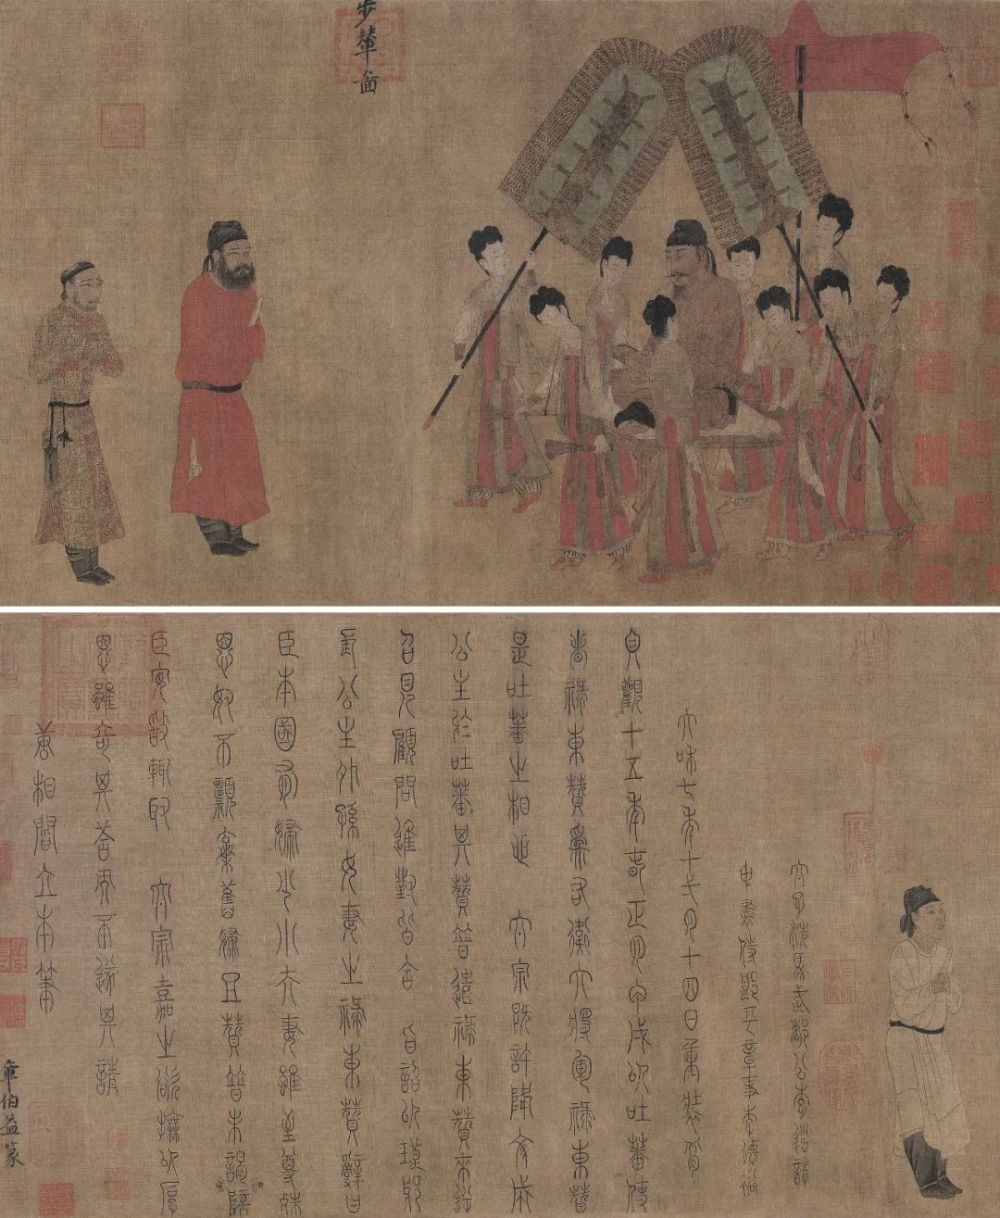 步輦圖
太子洗馬武都公李道誌
中書侍郎平章事李德裕
大和七年十一月十四日重裝背
貞觀十五年春正月甲戌以吐蕃使
者祿東贊為右衛大將軍祿東贊
是吐蕃之相也 太宗既許降文成
公主於吐蕃其贊普遣祿東贊來逆
召見顧問進對皆合 旨詔以瑯琊
長公主外孫女妻之祿東贊辭曰
臣本國有婦少小夫妻雖至尊殊
恩奴不願棄舊婦且贊普未謁陪
臣安敢輒取 太宗嘉之欲撫以厚
恩雖奇其答而不遂其請
唐相閻立本筆
章伯益篆